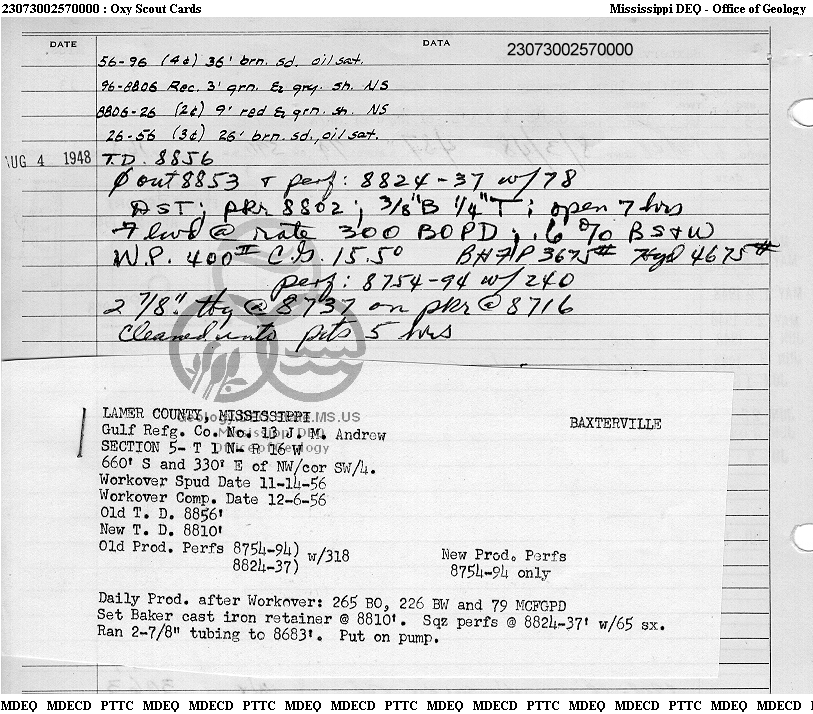 23073002570000 : Oxy Scout Cards Mississippi DEQ - Office of Geology
DATE DATA 23073002570000
56-96 (4¢) 36' brn. sd. oil sat.
96-8806 Rec. 3' grn. & gry. sh. NS
8806-26 (2¢) 9' red & grn. sh. NS
26-56 (3¢) 26' brn. sd., oil sat.
AUG 4 1948 T.D. 8856
Ø out 8853 + perf: 8824-37 w/78
DST; pkr 8802; 3/8"B 1/4"T; open 7 hrs
7 @ rate 300 BOPD; .6% BS+W
W.P. 400# C.G. 15.5° BHFP 3675# Hyd 4675#
perf: 8754-94 w/240
2 7/8" tbg @ 8737 on pkr @ 8716
Cleaned into pits 5 hrs
LAMER COUNTY, MISSISSIPPI BAXTERVILLE
Geology.DEQ.State.MS.US
Gulf Refg. Co. No. 13 J. M. Andrew
Mississippi DEQ
SECTION 5- T 1 N- R 16 W
Office of Geology
660' S and 330' E of NW/cor SW/4.
Workover Spud Date 11-14-56
Workover Comp. Date 12-6-56
Old T. D. 8856'
New T. D. 8810'
Old Prod. Perfs 8754-94) w/318 New Prod. Perfs
8824-37) 8754-94 only
Daily Prod. after Workover: 265 BO, 226 BW and 79 MCFGPD
Set Baker cast iron retainer @ 8810'. Sqz perfs @ 8824-37' w/65 sx.
Ran 2-7/8" tubing to 8683'. Put on pump.
MDEQ MDECD PTTC MDEQ MDECD PTTC MDEQ MDECD PTTC MDEQ MDECD PTTC MDEQ MDECD PTTC MDEQ MDECD